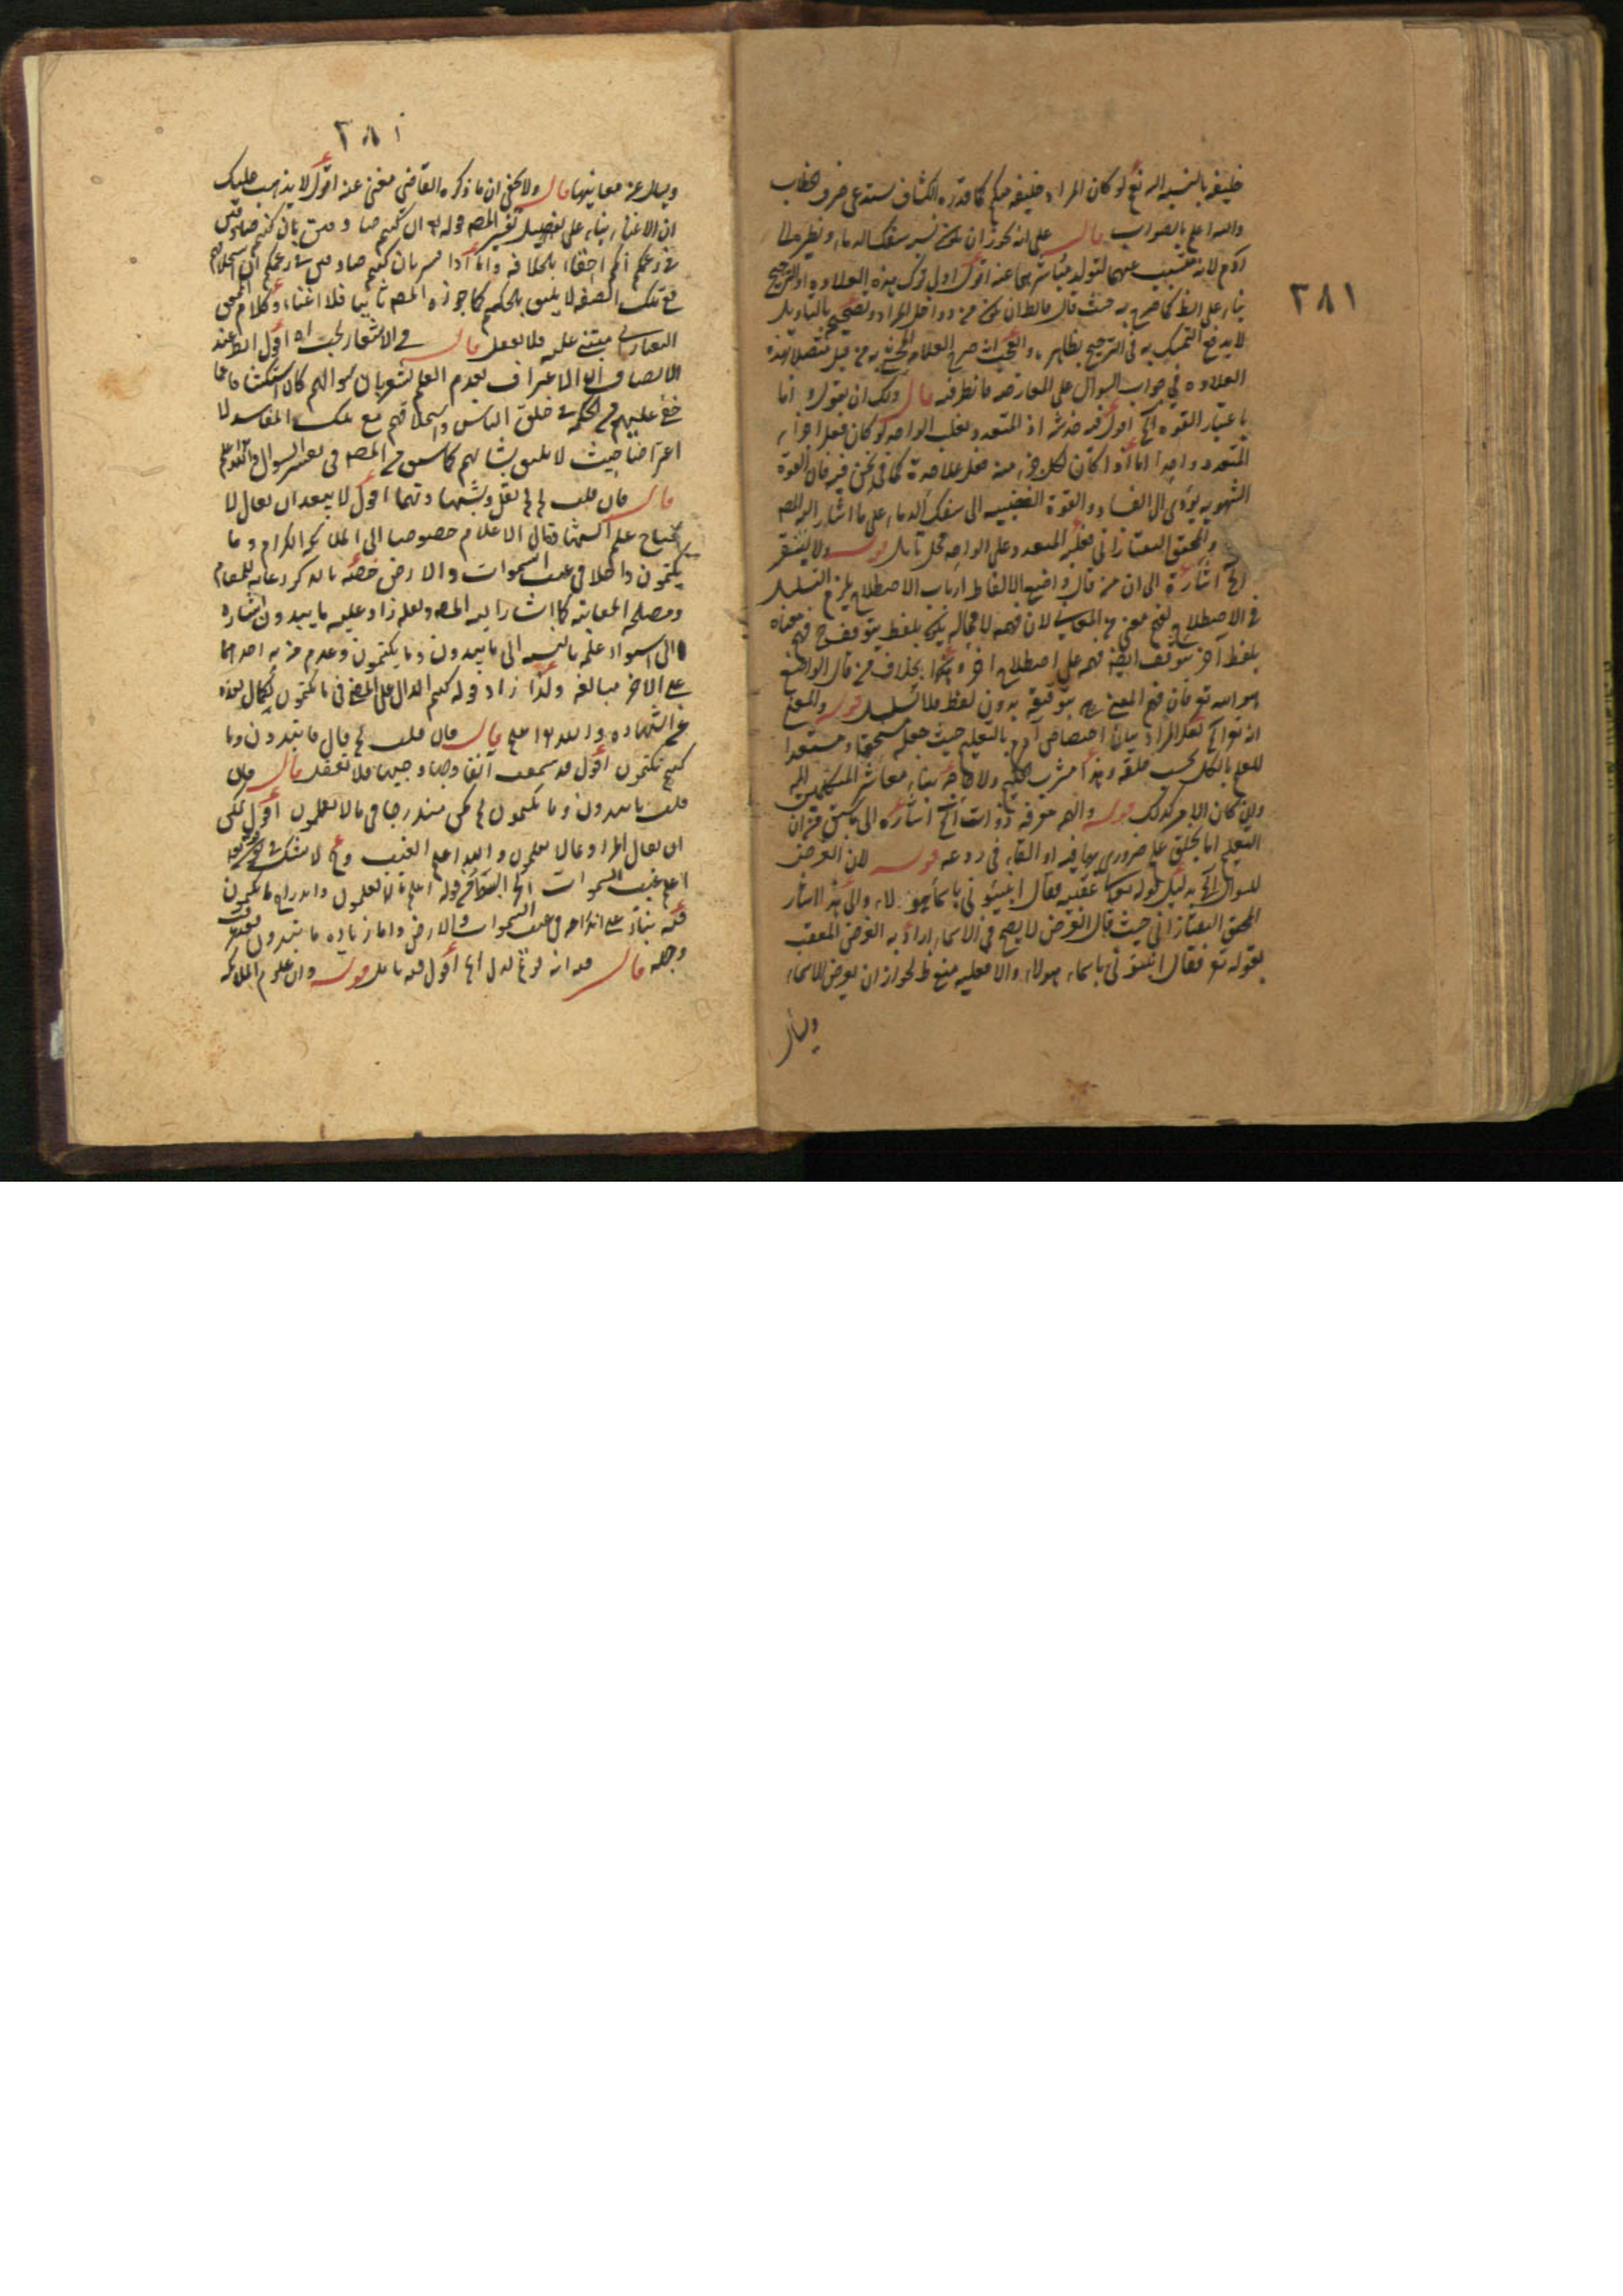 ٣٨١
خليفة بالنسبة اليه تع لو كان المراد خليفة منكم كما قدره الكشاف يستدعى صرف الخطاب
والله اعلم بالصواب قال على انه يجوز ان يكون نسبة سفك الدماء ونظيره الى
آدم لانه عنهما لتولد اقول اولى ترك هذه العلاوة اذ الترجيح
بناء على الظ كما صرح به حيث قال فالظ ان يكون من دواخل المراد وتصحيحه بالتأويل
لا يدفع التمسك به فى الترجيح بظاهره والعجب انه صرح العلامة به من قبل متصلا بهذه
العلاوة فى جواب السؤال على المعارضة فانظر فيه قال ولك ان تقول انما
باعتبار القوة الخ اقول فيه خدشة اذ المتعدد يغلب الواحد لو كان فعل اجزاء
المتعدد واحدا اما اذا كان لكل جزء منه فعل علاحدة كما فى نحن فيه فان القوة
الشهوية يؤدى الى الفساد والقوة الغضبية الى سفك الدماء على ما اشار اليه المص
والمحقق التفتازانى فغلبة المتعدد على الواحد محل تأمل قوله ولا يفتقر
الخ اشارة الى ان من قال واضع الالفاظ ارباب الاصطلاح يلزم التسلسل
فى الاصطلاح لان فهمه لا محالة يكون بلفظ يتوقف فهم معناه
بلفظ آخر يتوقف ايضا فهمه على اصطلاح آخر وهكذا بخلاف من قال الواضع
هو الله تع فان فهم المعنى بتوقيفه بدون لفظ فلا تسلسل قوله والمعنى
انه تع الخ لعل المراد بيان اختصاص آدم بالتعليم حيث جعله مستحقا ومستعدا
للعلم بالكل بحسب خلقه وهذا مشرب الحكيم ولا حاجة بنا معاشر المتكلمين اليه
وان كان الامر كذلك قوله والهمه معرفة ذوات الخ اشارة الى ما سبق من ان
التعليم اما بخلق علم ضرورى بها فيه او القاء فى روعه قوله لان العرض
للسؤال الخ بدليل قوله عقيبه فقال انبئونى باسماء هؤلاء والى هذا اشار
المحقق التفتازانى حيث قال العرض لا يصح فى الاسماء اذا اريد به العرض المعقب
بقوله تع فقال انبئونى باسماء هؤلاء والا فعليه منع لجواز ان يعرض الاسماء
ويسأل
٣٨١
ويسأل عن معانيها قال ولا يخفى ان ما ذكره القاضى مغن عنه اقول لا يذهب عليك
ان الاغناء بناء على تفصيل تفسير المص قوله تع ان كنتم صادقين بان كنتم صادقين
فى زعمكم انكم احقاء بالخلافة واما اذا فسر بان كنتم صادقين فى زعمكم ان استخلافهم
مع تلك الصفة لا يليق بالحكيم كما جوزه المص ثانيا فلا اغناء وكلام المحقق
التفتازانى مبتنى عليه فلا تغفل قال فى الاشعار بحث اه اقول الظ عند
الانصاف ان الاعتراف بعدم العلم يشعر بان سؤالهم كان استكشافا عما
خفى عليهم من الحكمة فى خلق الناس واستخلافهم مع تلك المفاسد لا
اعتراضا حيث لا يليق بشأنهم كما سبق من المص فى تفسير السؤال
قال فان قلت لم لم يقل وشهادتهما اقول لا يبعد ان يقال لا
يحتاج علم الاعلام خصوصا الى الملائكة الكرام وما
يكتمون داخلا فى غيب السموات والارض خصه بالذكر رعاية للمقام
ومصلحة المعاتبة كما اشار اليه المص ولعله زاد عليه ما يبدون اشارة
الى استواء علمه بالنسبة الى ما يبدون وما يكتمون وعدم مزية احدهما
على الآخر مبالغة ولذا زاد قوله كنتم الدال على المضى فى ما يكتمون لكمال بعده
عن الشهادة والله اعلم قال فان قلت لم قال ما تبدون وما
كنتم تكتمون اقول قد سمعت آنفا وجها وجيها فلا تغفل قال فان
قلت ما تبدون وما تكتمون لم يكن مندرجا فى ما لا تعلمون اقول يمكن
ان يقال المراد مما لا تعلمون والله اعلم الغيب ولا شك فى
اعلم غيب السموات الخ ابسط من قوله اعلم ما لا تعلمون واندراج ما تكتمون
فيه بناء على اندراجه فى غيب السموات والارض واما زيادة ما تبدون فقد عرفت
وجهه قال فيه انه لم يقل اه اقول فيه تأمل قوله وان علوم الملائكة